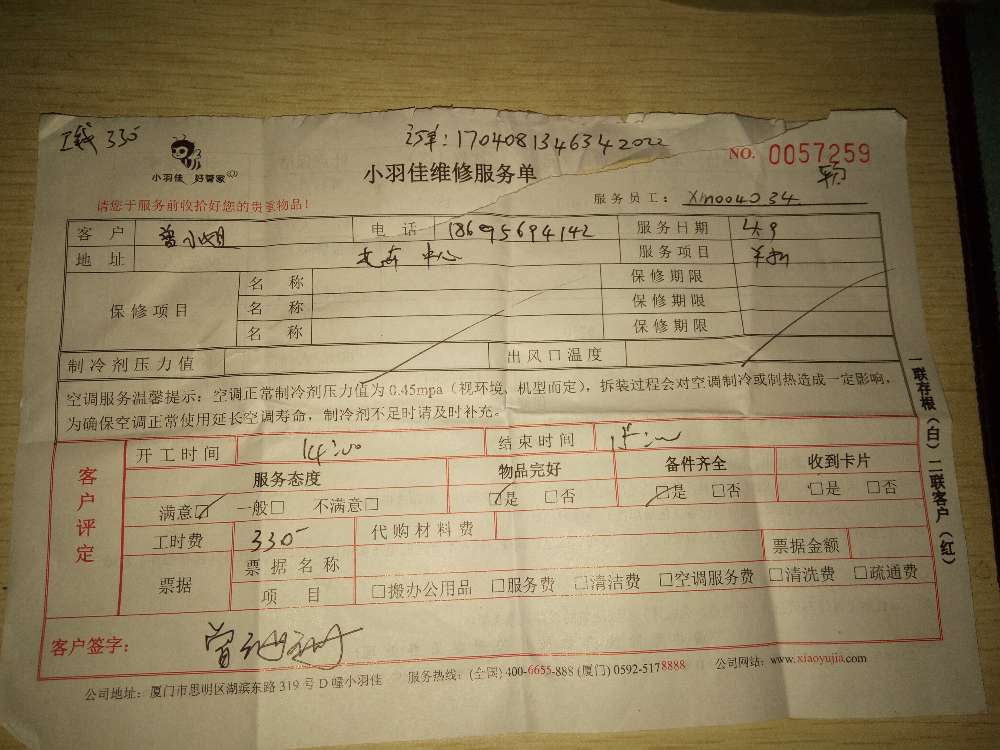 330
订单:1704081346342022
小羽佳 好管家
小羽佳维修服务单
NO. 0057259
请您于服务前收拾好您的贵重物品!
服务员工: Xm004034
客 户 曾小姐 电 话 18695694142 服务日期 4.9
地 址 中心 服务项目
保修项目
名 称 保修期限
名 称 保修期限
名 称 保修期限
制冷剂压力值 出风口温度
空调服务温馨提示:空调正常制冷剂压力值为0.45mpa(视环境、机型而定),拆装过程会对空调制冷或制热造成一定影响,
为确保空调正常使用延长空调寿命,制冷剂不足时请及时补充。
客户评定
开工时间 14:00 结束时间
服务态度 物品完好 备件齐全 收到卡片
满意□ 一般□ 不满意□ □是 □否 □是 □否 □是 □否
工时费 330 代购材料费
票据 票据名称 票据金额
项 目 □搬办公用品 □服务费 □清洁费 □空调服务费 □清洗费 □疏通费
客户签字:
公司地址:厦门市思明区湖滨东路319号D幢小羽佳 服务热线:(全国)400-6655-888 (厦门) 0592-5178888 公司网站:www.xiaoyujia.com
一联存根(白)二联客户(红)